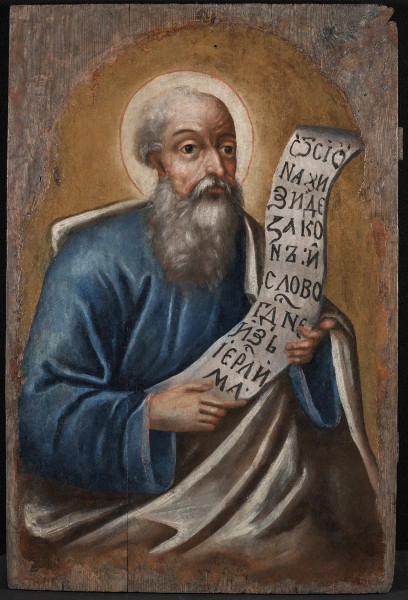 Ѿ СІѠ
НА И
ЗИДЕ
ЗАКО
НЪ: И
СЛОВО
ГДНЕ
ИЗЪ
ІЕРЛИ
МА·